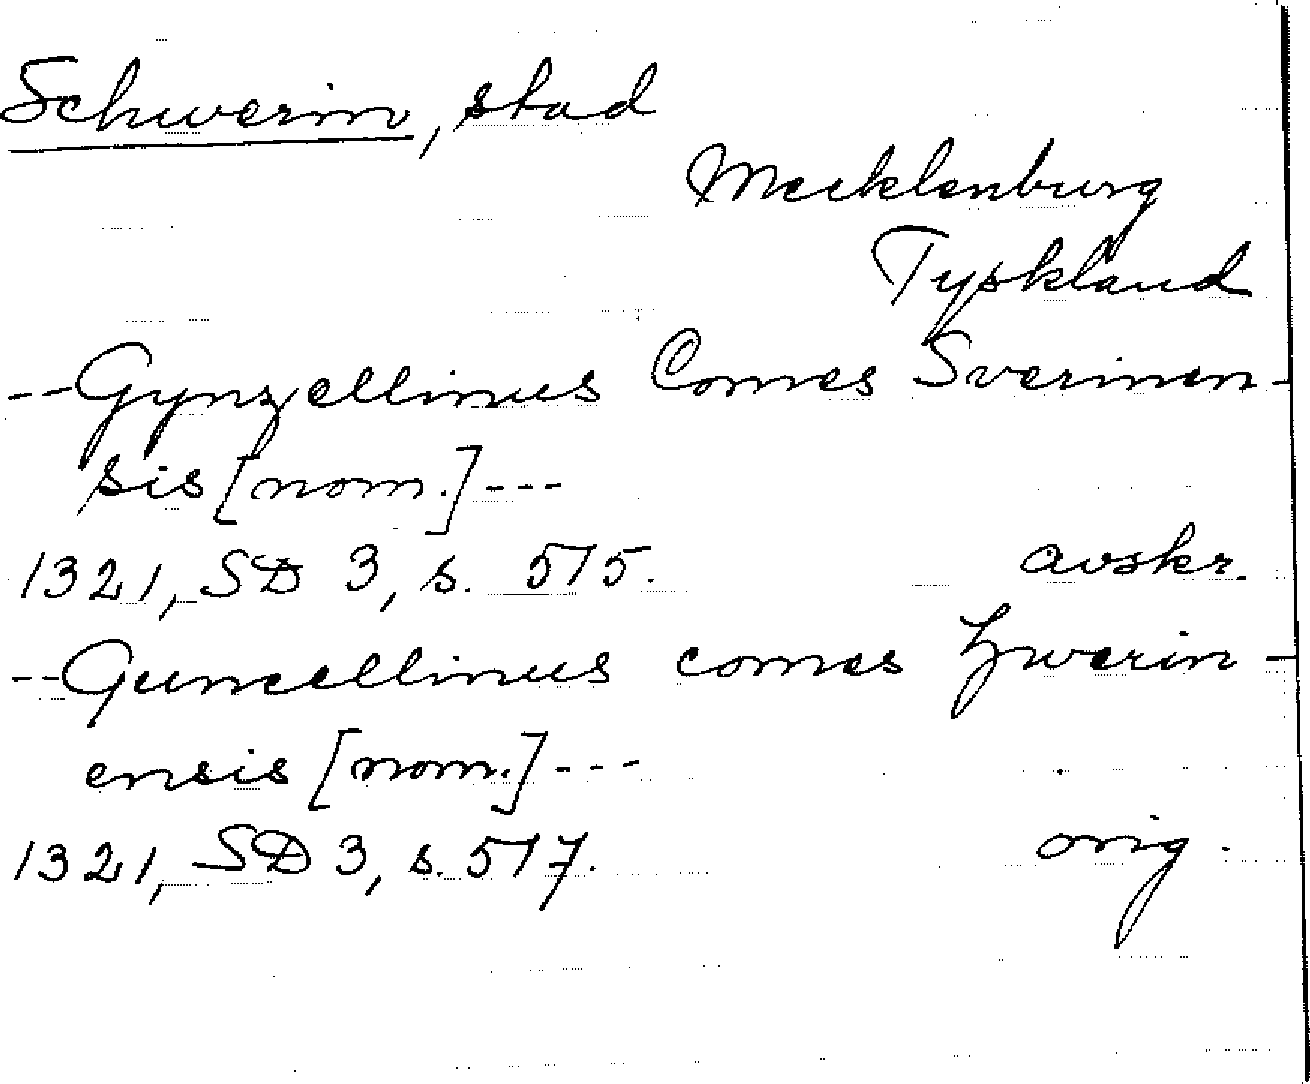 Schwerin, stad
Mecklenburg
Tyskland
--Gynzellinus Comes Sverinen-
sis [nom.]---
1321, SD 3, s. 515. avskr.
--Guncellinus comes Zwerin-
ensis [nom.]---
1321, SD 3, s. 517. orig.